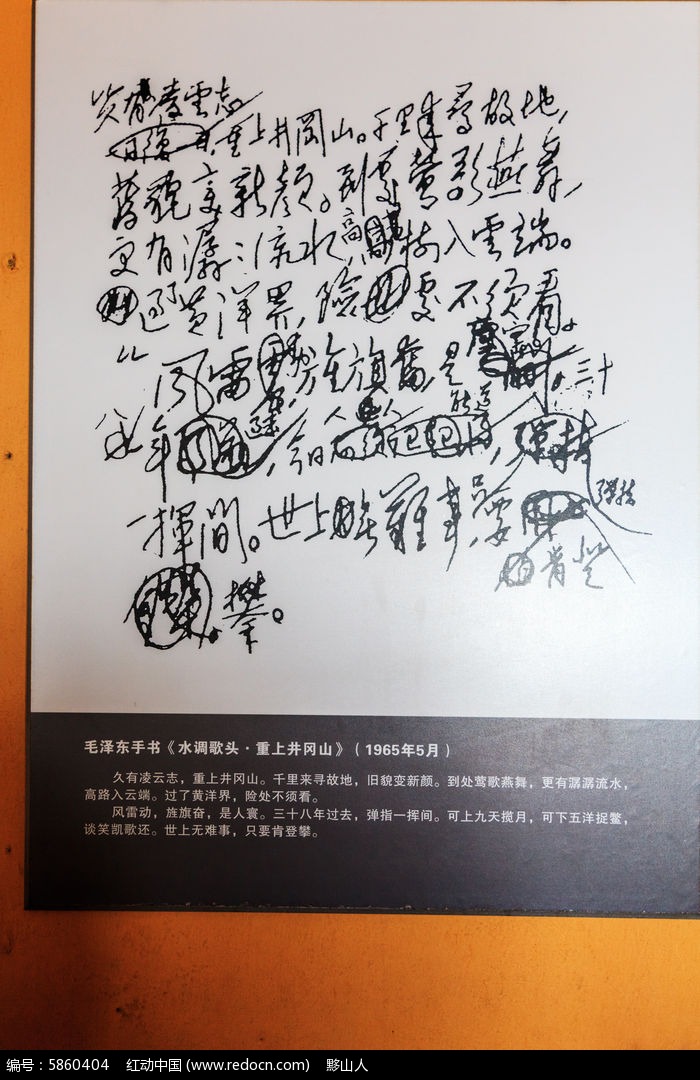 久有凌雲志
重上井岡山。千里来尋故地，
舊貌变新颜。到處莺歌燕舞，
更有潺：流水，高樹入雲端。
过了黄洋界，險處不须看。
风雷动，旌旗奮，是
三十
年
今日
弹指
一揮间。世上難事，只要
肯登
攀。
毛泽东手书《水调歌头·重上井冈山》（1965年5月）
久有凌云志，重上井冈山。千里来寻故地，旧貌变新颜。到处莺歌燕舞，更有潺潺流水，
高路入云端。过了黄洋界，险处不须看。
风雷动，旌旗奋，是人寰。三十八年过去，弹指一挥间。可上九天揽月，可下五洋捉鳖，
谈笑凯歌还。世上无难事，只要肯登攀。
编号：5860404 红动中国 (www.redocn.com) 黟山人